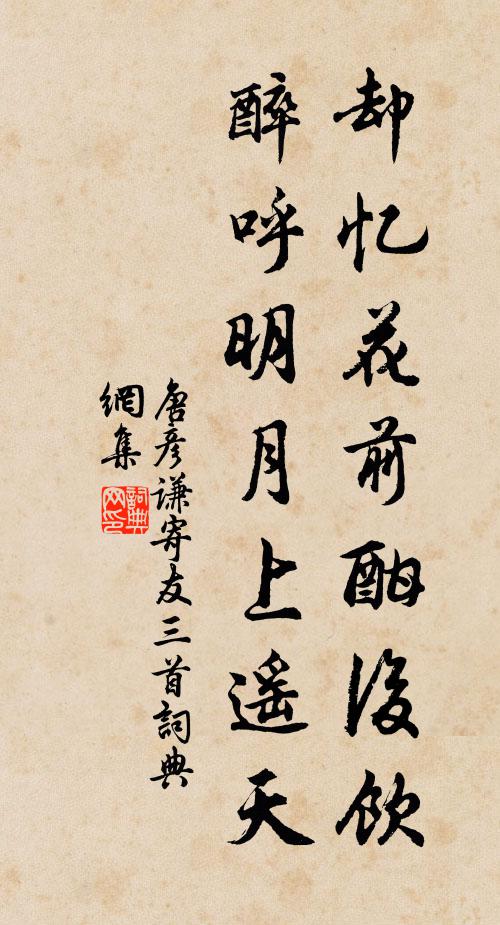 却忆花前酣後饮
醉呼明月上遥天
唐彦谦寄友三首詞典
網集
詞典
网印